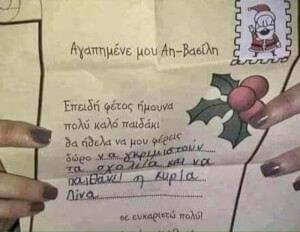 Αγαπημένε μου Αη-Βασίλη
Επειδή φέτος ήμουνα
πολύ καλό παιδάκι
θα ήθελα να μου φέρεις
δώρο να γκρεμιστούν
τα σχολεία και να
παιθάνει η κυρία
Λίνα
σε ευχαριστώ πολύ!